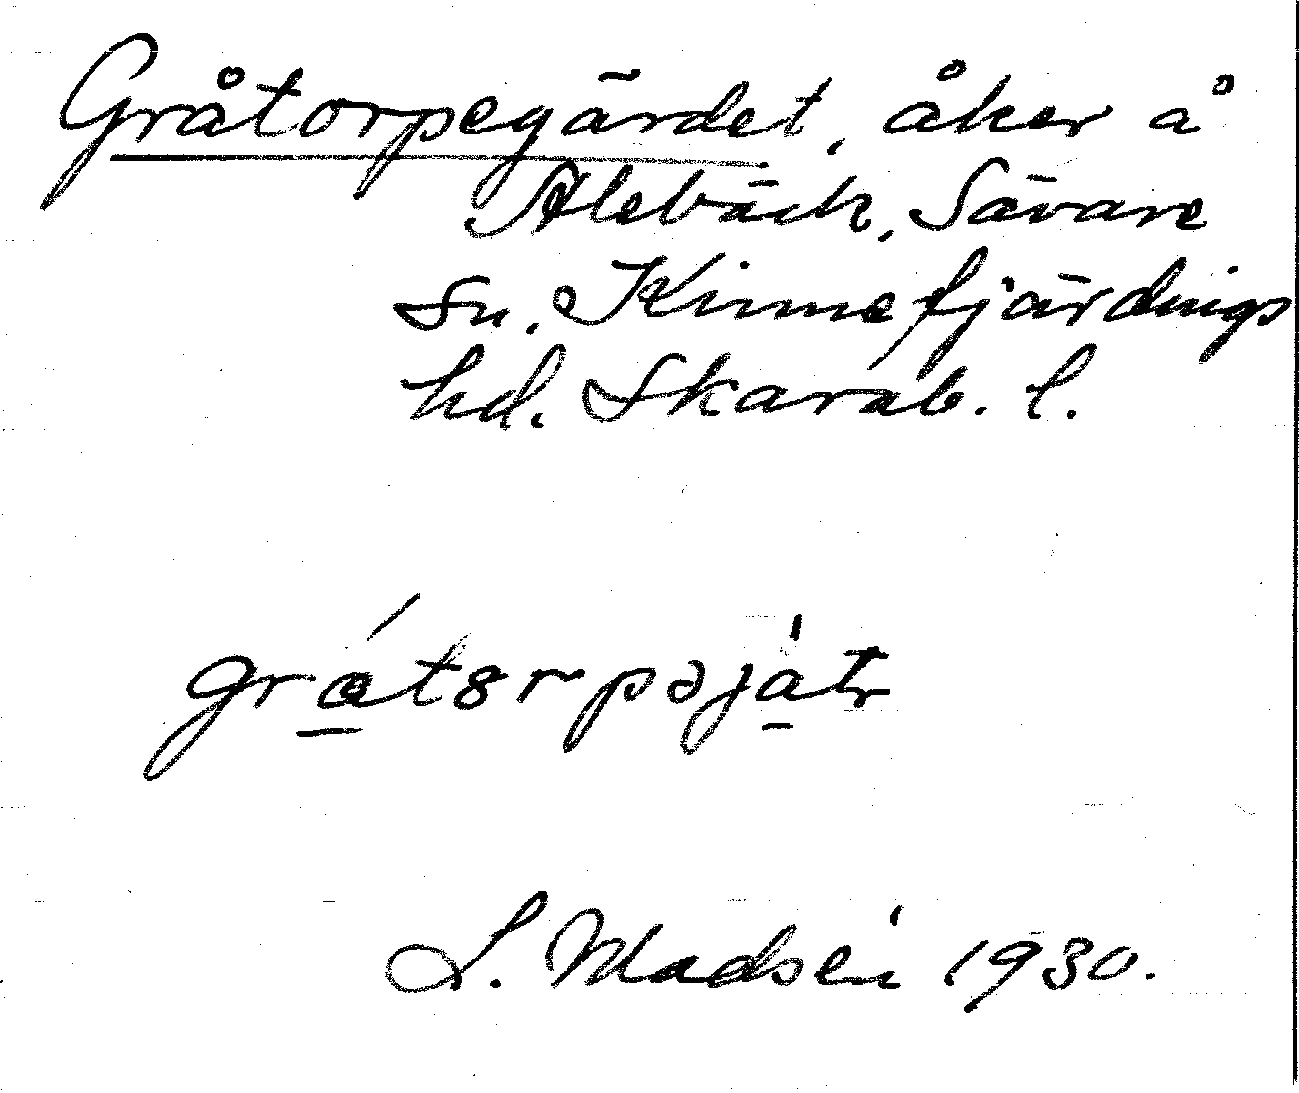 Gråtorpegärdet, åker å
Alebäck, Sävare
sn. Kinnefjärdings
hd. Skarab. l.
L. Madsén 1930.